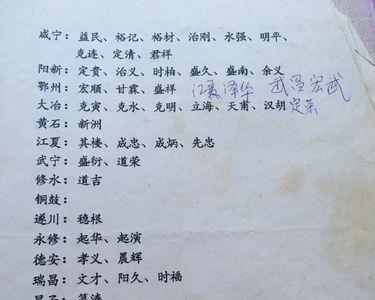 咸宁：益民、裕记、裕材、治刚、永强、明平、
克连、定清、君祥
阳新：定贵、治义、时柏、盛久、盛南、余义
鄂州：宏顺、甘霖、盛祥 江夏泽华 武昌宏武
大冶：克寅、克水、克明、立海、天甫、汉胡 定荣
黄石：新洲
江夏：其楼、成忠、成炳、先忠
武宁：盛衍、道荣
修水：道吉
铜鼓：
遂川：稳根
永修：起华、起演
德安：孝义、晨辉
瑞昌：文才、阳久、时福